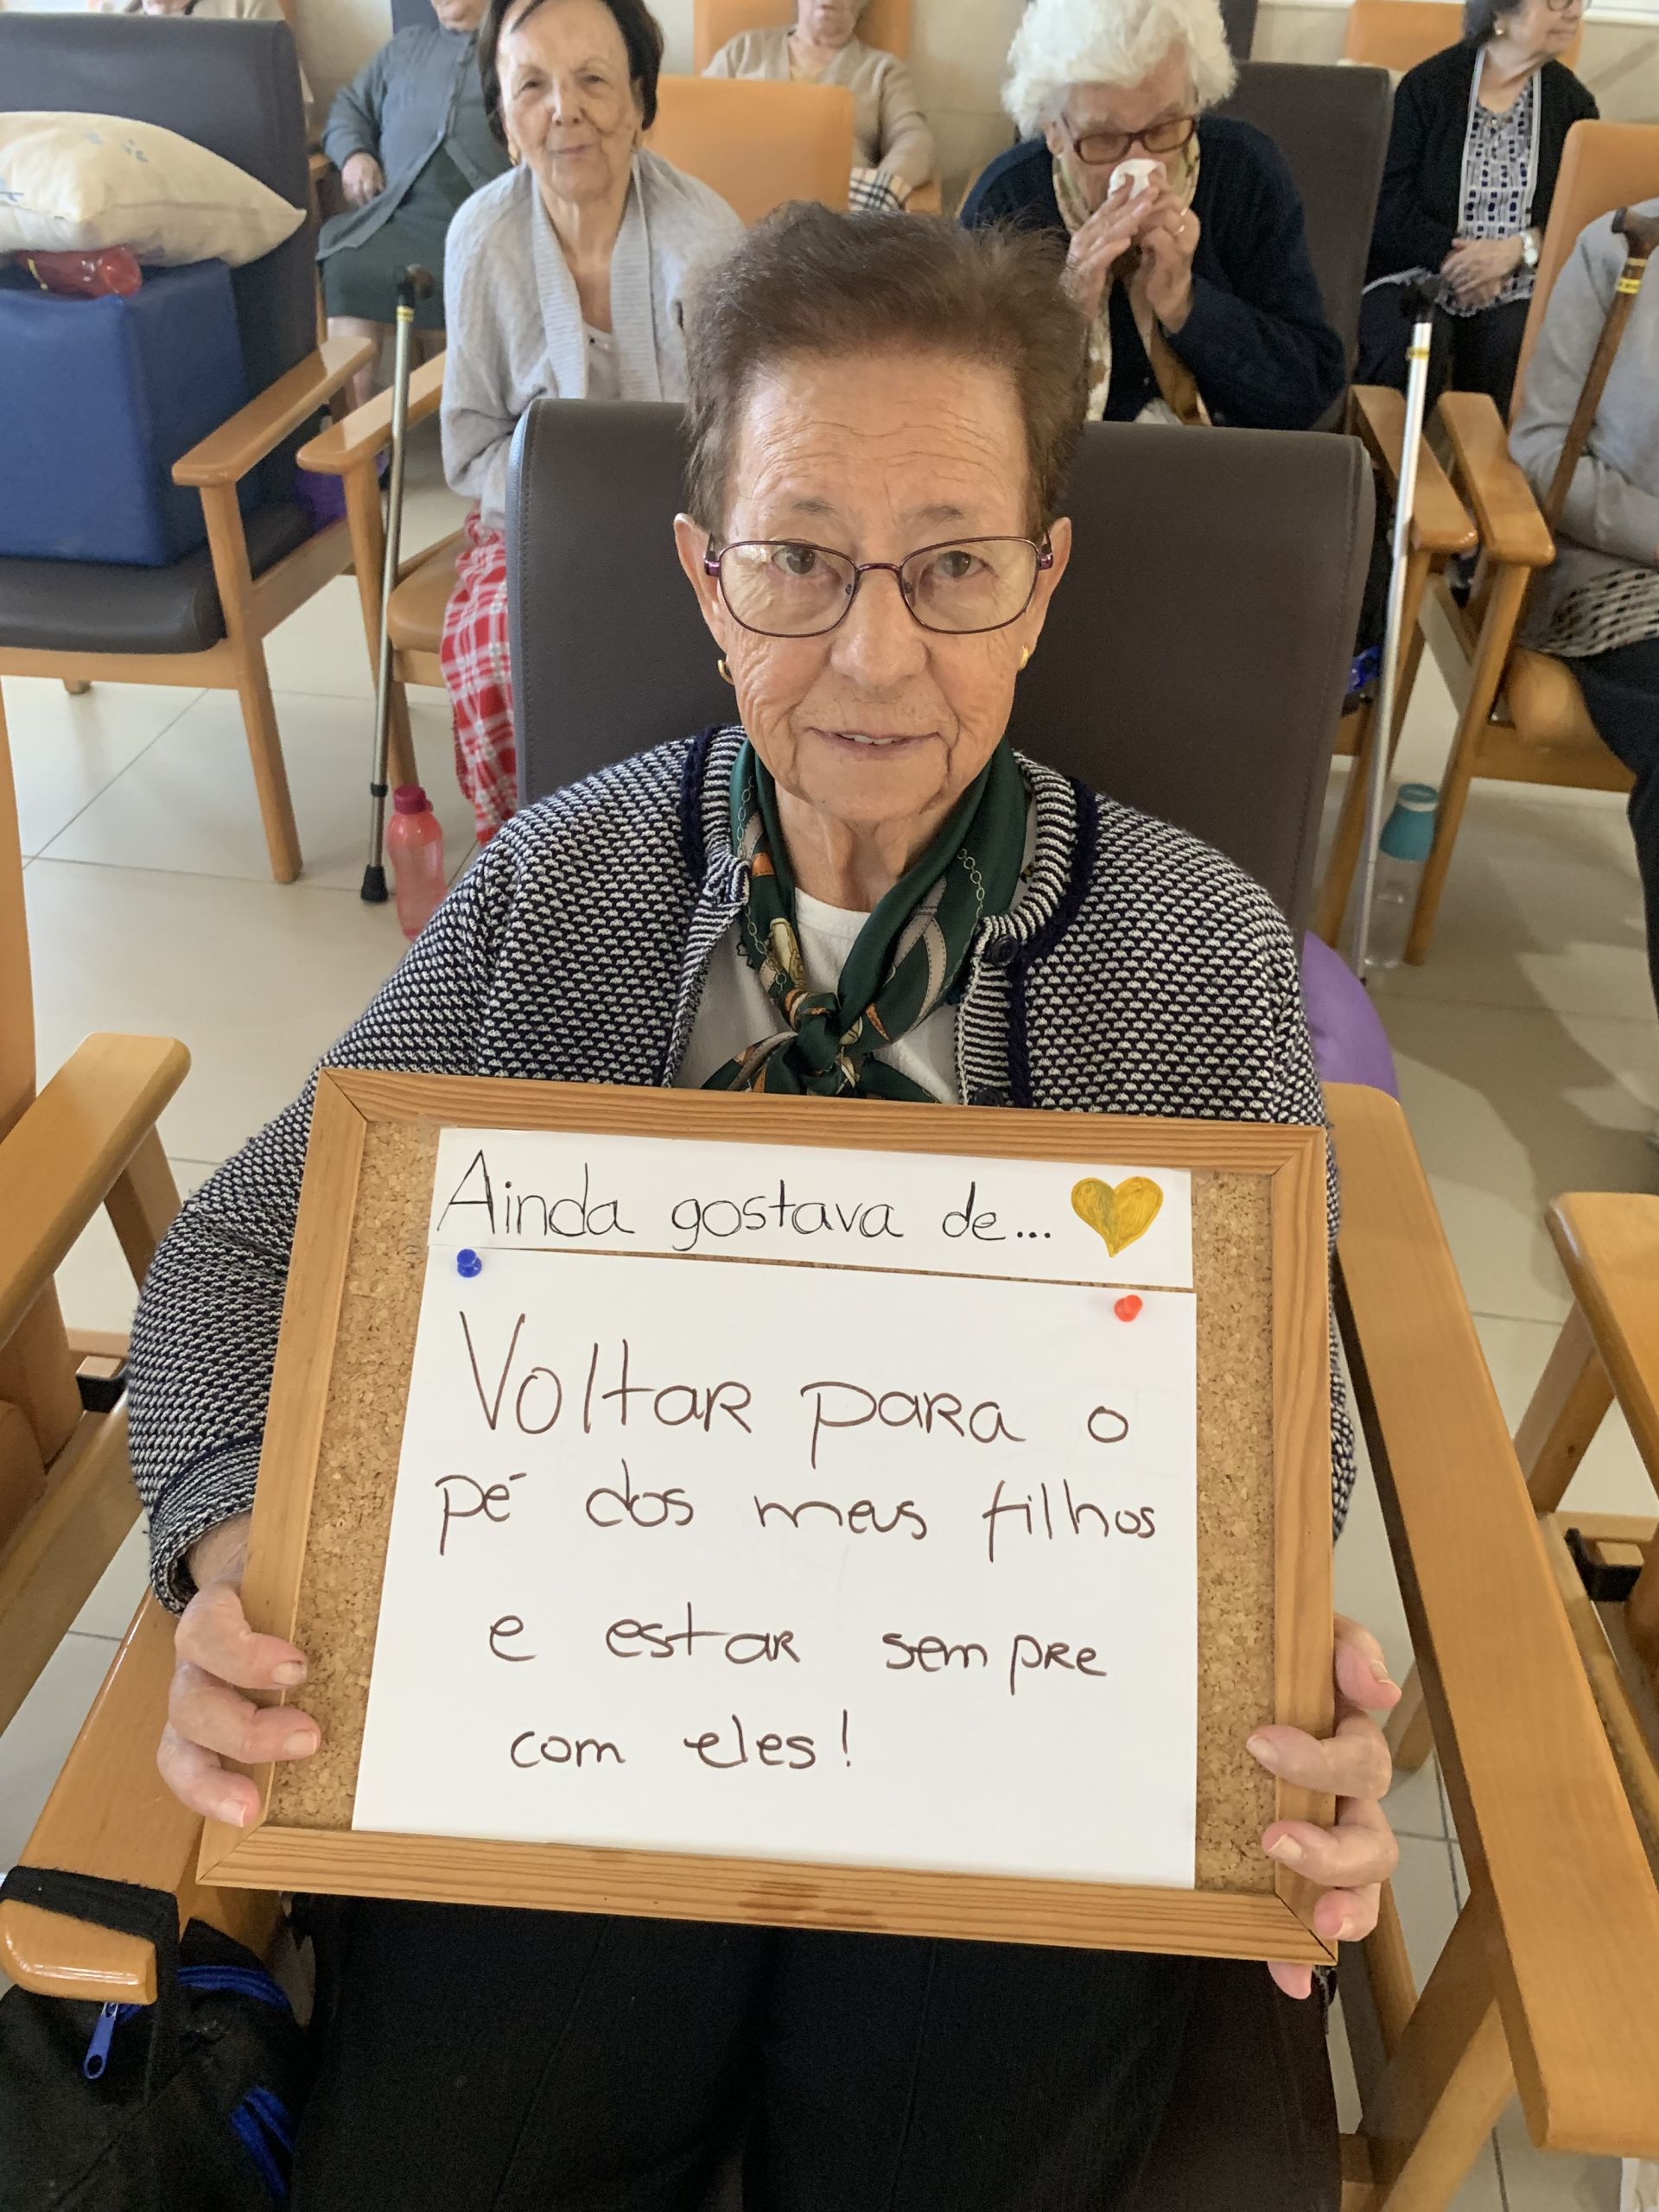 Ainda gostava de...
Voltar para o
pé dos meus filhos
e estar sempre
com eles!